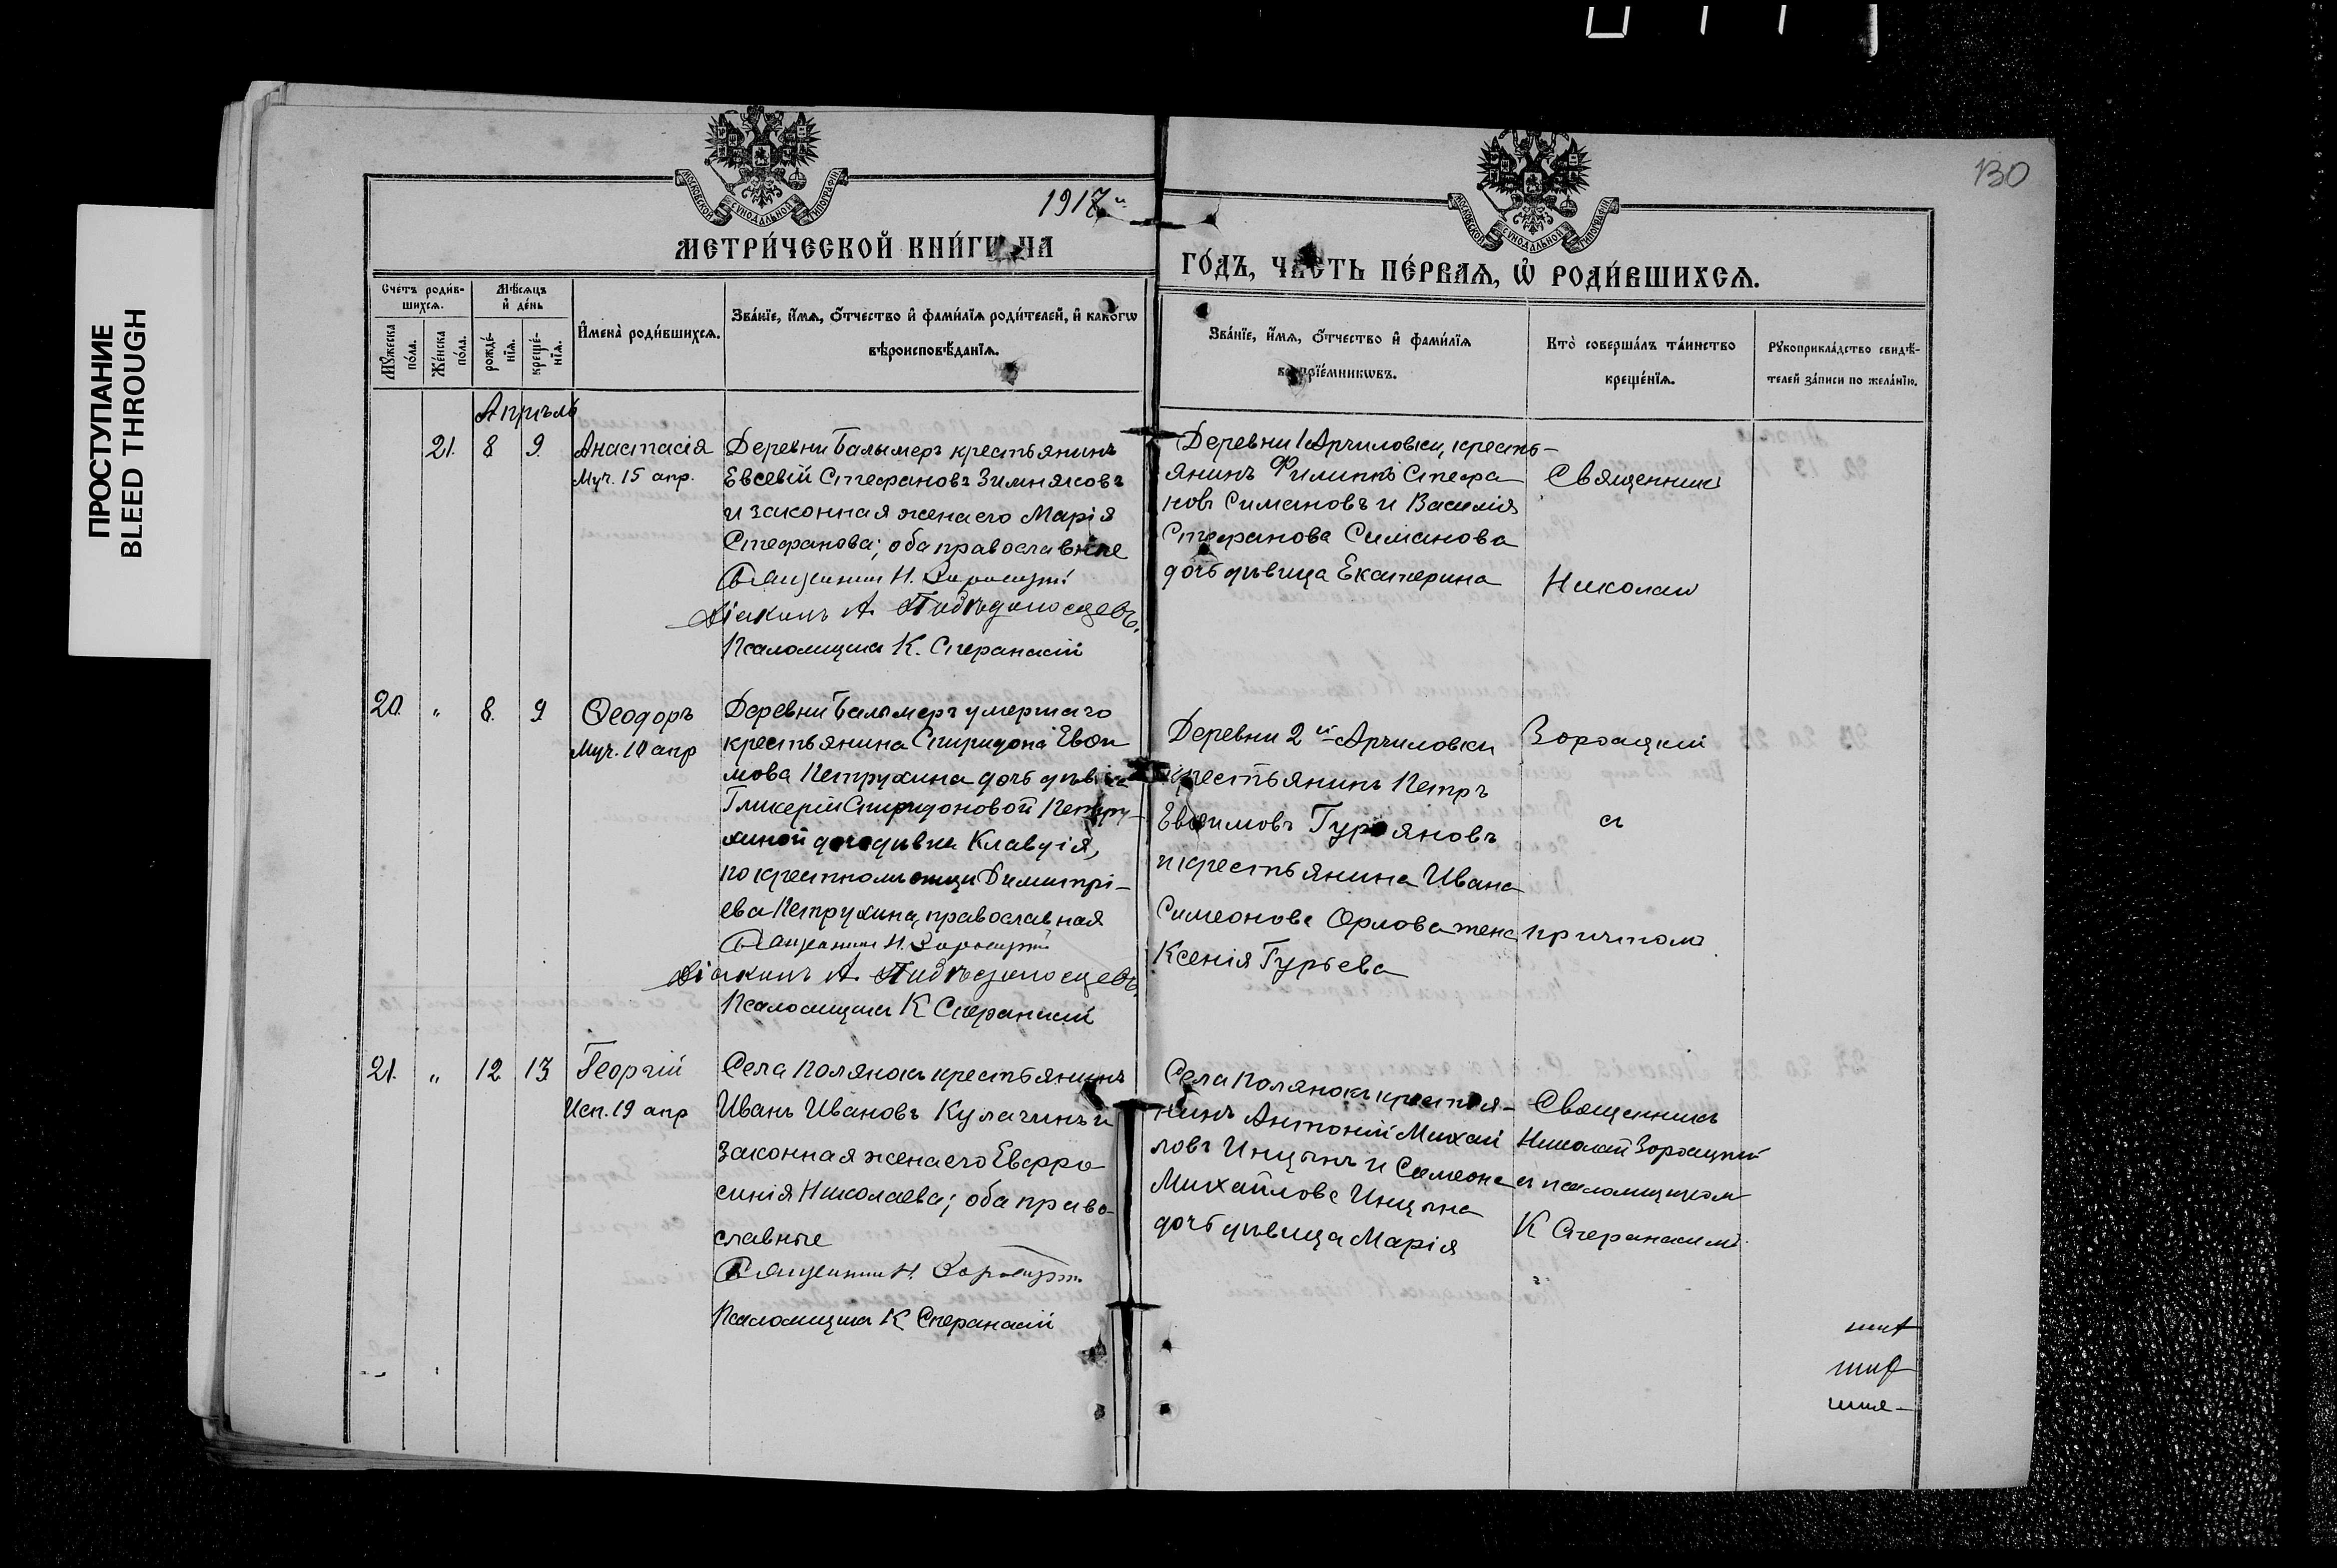 ПРОСТУПАНИЕ
BLEED THROUGH
130
МОСКОВСКОЙ СѴНОДАЛЬНОЙ ТИПОГРАФІИ
МОСКОВСКОЙ СѴНОДАЛЬНОЙ ТИПОГРАФІИ
1917й
МЕТРИ́ЧЕСКОЙ КНИ́ГИ НА
ГО́ДЪ, ЧАСТЬ ПЕ́РВАЯ, Ѡ҆ РОДИ́ВШИХСѦ.
Счетъ роди́в-
шихсѧ.
Мꙋ́жеска
по́ла.
Же́нска
по́ла.
Мѣ́сяцъ
и҆ де́нь
рожде́-
нїѧ.
креще́-
нїѧ.
И҆мена̀ роди́вшихсѧ.
Зва́нїе, и҆́мѧ, ѻ҆́тчество и҆ фами́лїѧ роди́телей, и҆ какогѡ
вѣроисповѣ́данїѧ.
Зва́нїе, и҆́мѧ, ѻ҆́тчество и҆ фами́лїѧ
воспрїе́мникѡвъ.
Кто̀ соверша́лъ та́инство
креще́нїѧ.
Рꙋкоприкла́дство свидѣ́-
телей за́писи по жела́нїю.
Апрѣль
21. 8 9. Анастасія
Муч. 15 апр.
Деревни Балымеръ крестьянинъ
Евсевій Стефановъ Зимняковъ
и законная жена его Марія
Стефанова; оба православные
Священникъ Н.
Діаконъ А.
Псаломщикъ К. Сперанскій
Деревни 1 Арчиловки, кресть-
янинъ Филиппъ Стефа
новъ Симановъ и Василія
Стефанова Симанова
дочь дѣвица Екатерина
Священникъ
Николай
20. " 8. 9 Ѳеодоръ
Муч. 10 апр
Деревни Балымеръ умершаго
крестьянина Спиридона Евѳи
мова Петрухина дочь дѣвица
Гликеріи Спиридоновой Петру-
хиной дочь дѣвка Клавдія,
по крестному отцу Димитрі-
ева Петрухина, православная
Священникъ Н.
Діаконъ А.
Псаломщикъ К Сперанскій
Деревни 2й Арчиловки
крестьянинъ Петръ
Евѳимовъ Гурьяновъ
и крестьянина Ивана
Симеонова Орлова жена
Ксенія Гурьева
съ
причтомъ
21. " 12 13 Георгій
Исп. 19 апр
Села Полянокъ крестьянинъ
Иванъ Ивановъ Кулагинъ и
законная жена его Евфро
синія Николаева; оба право-
славные
Священникъ Н.
Псаломщикъ К Сперанскій
Села Полянокъ крестья-
нинъ Антоній Михаи
ловъ Инцынъ и Симеона
Михайлова Инцына
дочь дѣвица Марія
Священникъ
Николай
съ псаломщикомъ
К Сперанскимъ